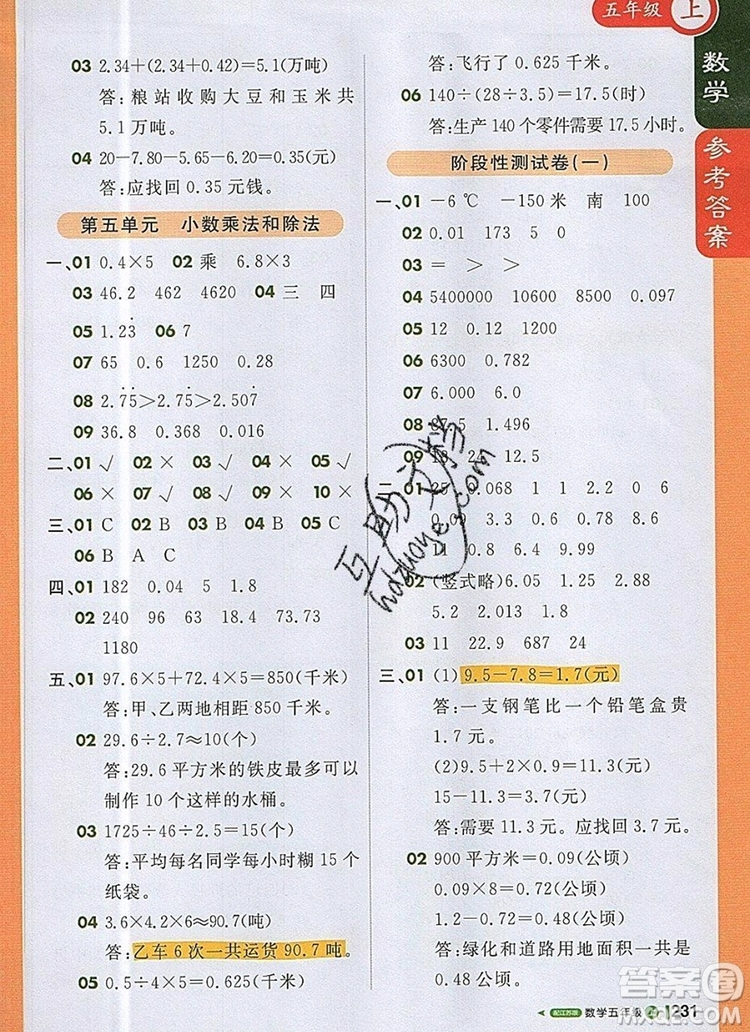 五年级 上
数学
参考答案
03 2.34+(2.34+0.42)=5.1(万吨)
答:粮站收购大豆和玉米共
5.1万吨。
04 20-7.80-5.65-6.20=0.35(元)
答:应找回 0.35 元钱。
第五单元 小数乘法和除法
一、01 0.4×5 02 乘 6.8×3
03 46.2 462 4620 04 三 四
05 1.23̇ 06 7
07 65 0.6 1250 0.28
08 2.7̇5̇>2.75̇>2.507̇
09 36.8 0.368 0.016
二、01 √ 02 × 03 √ 04 × 05 √
06 × 07 × 08 √ 09 × 10 ×
三、01 C 02 B 03 B 04 B 05 C
06 B A C
四、01 182 0.04 5 1.8
02 240 96 63 18.4 73.73
1180
五、01 97.6×5+72.4×5=850(千米)
答:甲、乙两地相距 850 千米。
02 29.6÷2.7≈10(个)
答:29.6 平方米的铁皮最多可以
制作 10 个这样的水桶。
03 1725÷46÷2.5=15(个)
答:平均每名同学每小时糊 15 个
纸袋。
04 3.6×4.2×6≈90.7(吨)
答:乙车 6 次一共运货 90.7 吨。
05 0.5÷4×5=0.625(千米)
答:飞行了 0.625 千米。
06 140÷(28÷3.5)=17.5(时)
答:生产 140 个零件需要 17.5 小时。
阶段性测试卷(一)
一、01 -6 ℃ -150 米 南 100
02 0.01 173 5 0
03 = > >
04 5400000 10600 8500 0.097
05 12 0.12 1200
06 6300 0.782
07 6.000 6.0
08 37.5 1.496
09 18 24 12.5
二、01 25 0.068 1 1 2.2 0 6
0.09 3 0.9 0.3 7.5 4
11 0.8 9.9
02 (竖式略)6.05 1.25 2.88
5.2 2.013 1.8
03 11 22.9 687 24
三、01 (1)9.5-7.8=1.7(元)
答:一支钢笔比一个铅笔盒贵
1.7 元。
(2)9.5+1.8=11.3(元)
15-11.3=3.7(元)
答:需要 11.3 元。应找回 3.7 元。
02 900 平方米=0.09(公顷)
0.09×8=0.72(公顷)
1.2-0.72=0.48(公顷)
答:绿化和道路用地面积一共是
0.48 公顷。
配江苏版 数学五年级 上 1231
互助文档
hdzuoye.com
答案圈
MXQE.COM